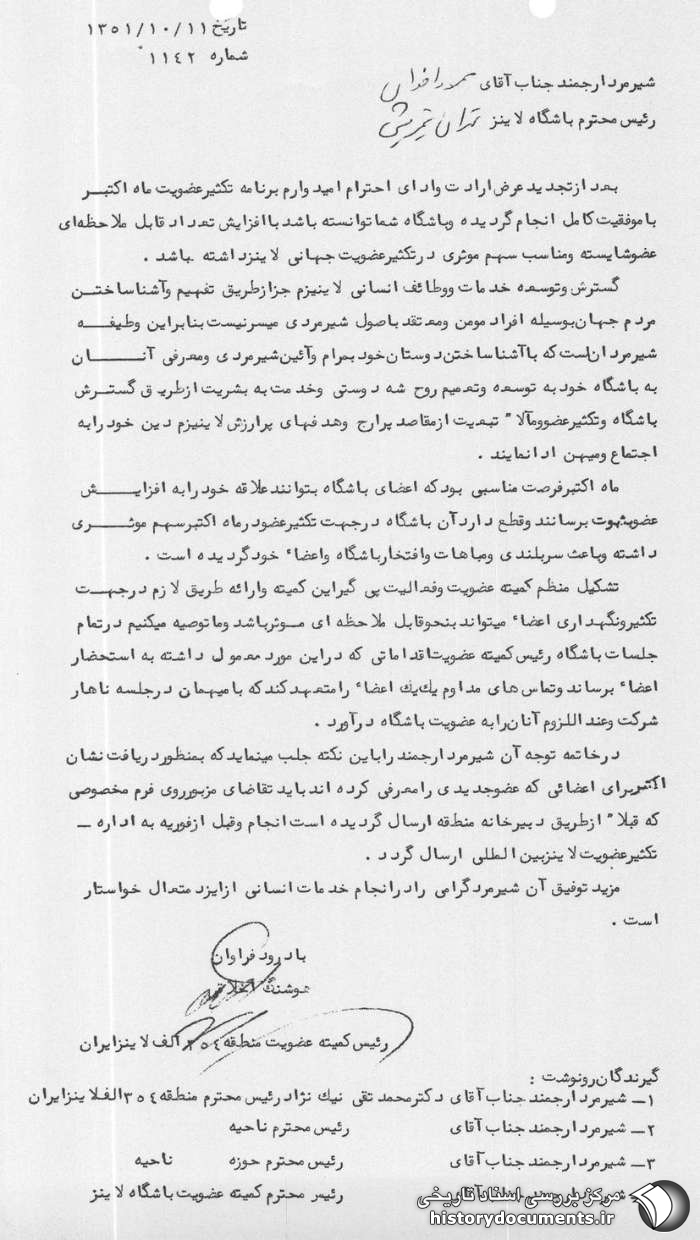 تاریخ ۱۳۵۱/۱۰/۱۱
شماره ۱۱۴۲
شیرمرد ارجمند جناب آقای
رئیس محترم باشگاه لاینز تهران تجریش
بعد از تجدید عرض ارادت وادای احترام امیدوارم برنامه تکثیر عضویت ماه اکتبر
با موفقیت کامل انجام گردیده وباشگاه شما توانسته باشد با افزایش تعداد قابل ملاحظه‌ای
عضو شایسته ومناسب سهم موثری در تکثیر عضویت جهانی لاینز داشته باشد .
گسترش وتوسعه خدمات ووظائف انسانی لاینیزم جز از طریق تفهیم وآشنا ساختن
مردم جهان بوسیله افراد مومن ومعتقد باصول شیرمردی میسر نیست بنابراین وظیفه
شیرمردان است که با آشنا ساختن دوستان خود بمرام وآئین شیرمردی ومعرفی آنان
به باشگاه خود به توسعه وتعمیم روح شه دوستی وخدمت به بشریت از طریق گسترش
باشگاه وتکثیر عضو ومآلا" تبعیت از مقاصد پرارج وهدفهای پرارزش لاینیزم دین خود را به
اجتماع ومیهن ادا نمایند .
ماه اکتبر فرصت مناسبی بود که اعضای باشگاه بتوانند علاقه خود را به افزایش
عضو بثبوت برسانند وقطع دارد آن باشگاه در جهت تکثیر عضو در ماه اکتبر سهم موثری
داشته وباعث سربلندی ومباهات وافتخار باشگاه واعضاء خود گردیده است .
تشکیل منظم کمیته عضویت وفعالیت پی گیر این کمیته وارائه طریق لازم در جهت
تکثیر ونگهداری اعضاء میتواند بنحو قابل ملاحظه ای موثر باشد وما توصیه میکنیم در تمام
جلسات باشگاه رئیس کمیته عضویت اقداماتی که در این مورد معمول داشته به استحضار
اعضاء برساند وتماس های مداوم یك یك اعضاء را متعهد کند که با میهمان در جلسه ناهار
شرکت وعند اللزوم آنان را به عضویت باشگاه درآورد .
در خاتمه توجه آن شیرمرد ارجمند را باین نکته جلب مینماید که بمنظور دریافت نشان
اکتبر برای اعضائی که عضو جدیدی را معرفی کرده اند باید تقاضای مزبور روی فرم مخصوصی
که قبلا" از طریق دبیرخانه منطقه ارسال گردیده است انجام وقبل از فوریه به اداره ـ
تکثیر عضویت لاینز بین المللی ارسال گردد .
مزید توفیق آن شیرمرد گرامی را در انجام خدمات انسانی از ایزد متعال خواستار
است .
با درود فراوان
هوشنگ
رئیس کمیته عضویت منطقه ۳۵۴ الف لاینز ایران
گیرندگان رونوشت :
۱ـ شیرمرد ارجمند جناب آقای دکتر محمد تقی نیك نژاد رئیس محترم منطقه ۳۵۴ الف لاینز ایران
۲ـ شیرمرد ارجمند جناب آقای رئیس محترم ناحیه
۳ـ شیرمرد ارجمند جناب آقای رئیس محترم حوزه ناحیه
رئیس محترم کمیته عضویت باشگاه لاینز
مرکز بررسی اسناد تاریخی
historydocuments.ir